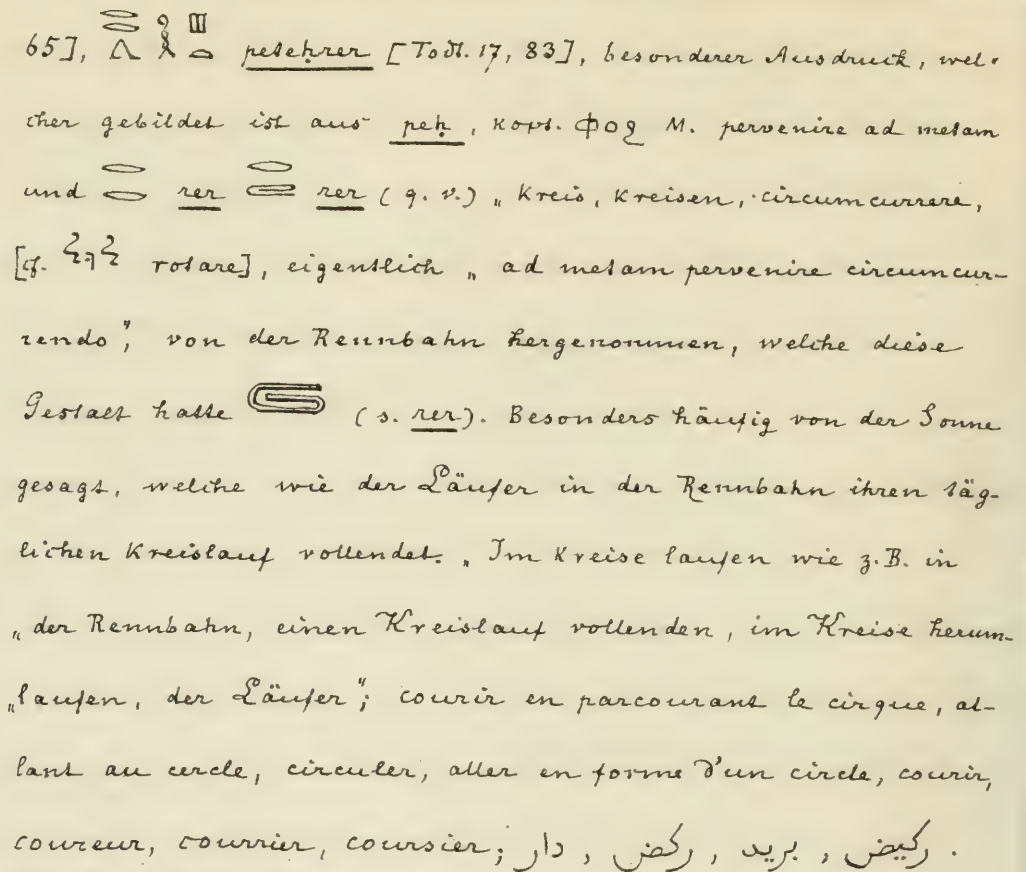 65], petehrer [Todt. 17, 83], besonderer Ausdruck, wel-
cher gebildet ist aus peh, kopt. ⲫⲟϩ M. pervenire ad metam
und rer rer (q. v.) „Kreis, kreisen, circumcurrere,
[cf. rotare], eigentlich „ad metam pervenire circumcur-
rendo", von der Rennbahn hergenommen, welche diese
Gestalt hatte (s. rer). Besonders häufig von der Sonne
gesagt, welche wie der Läufer in der Rennbahn ihren täg-
lichen Kreislauf vollendet. „Im Kreise laufen wie z.B. in
„der Rennbahn, einen Kreislauf vollenden, im Kreise herum-
„laufen, der Läufer"; courir en parcourant le cirque, al-
lant au cercle, circuler, aller en forme d'un circle, courir,
coureur, courrier, coursier; ركيض , بريد , ركض , دار .